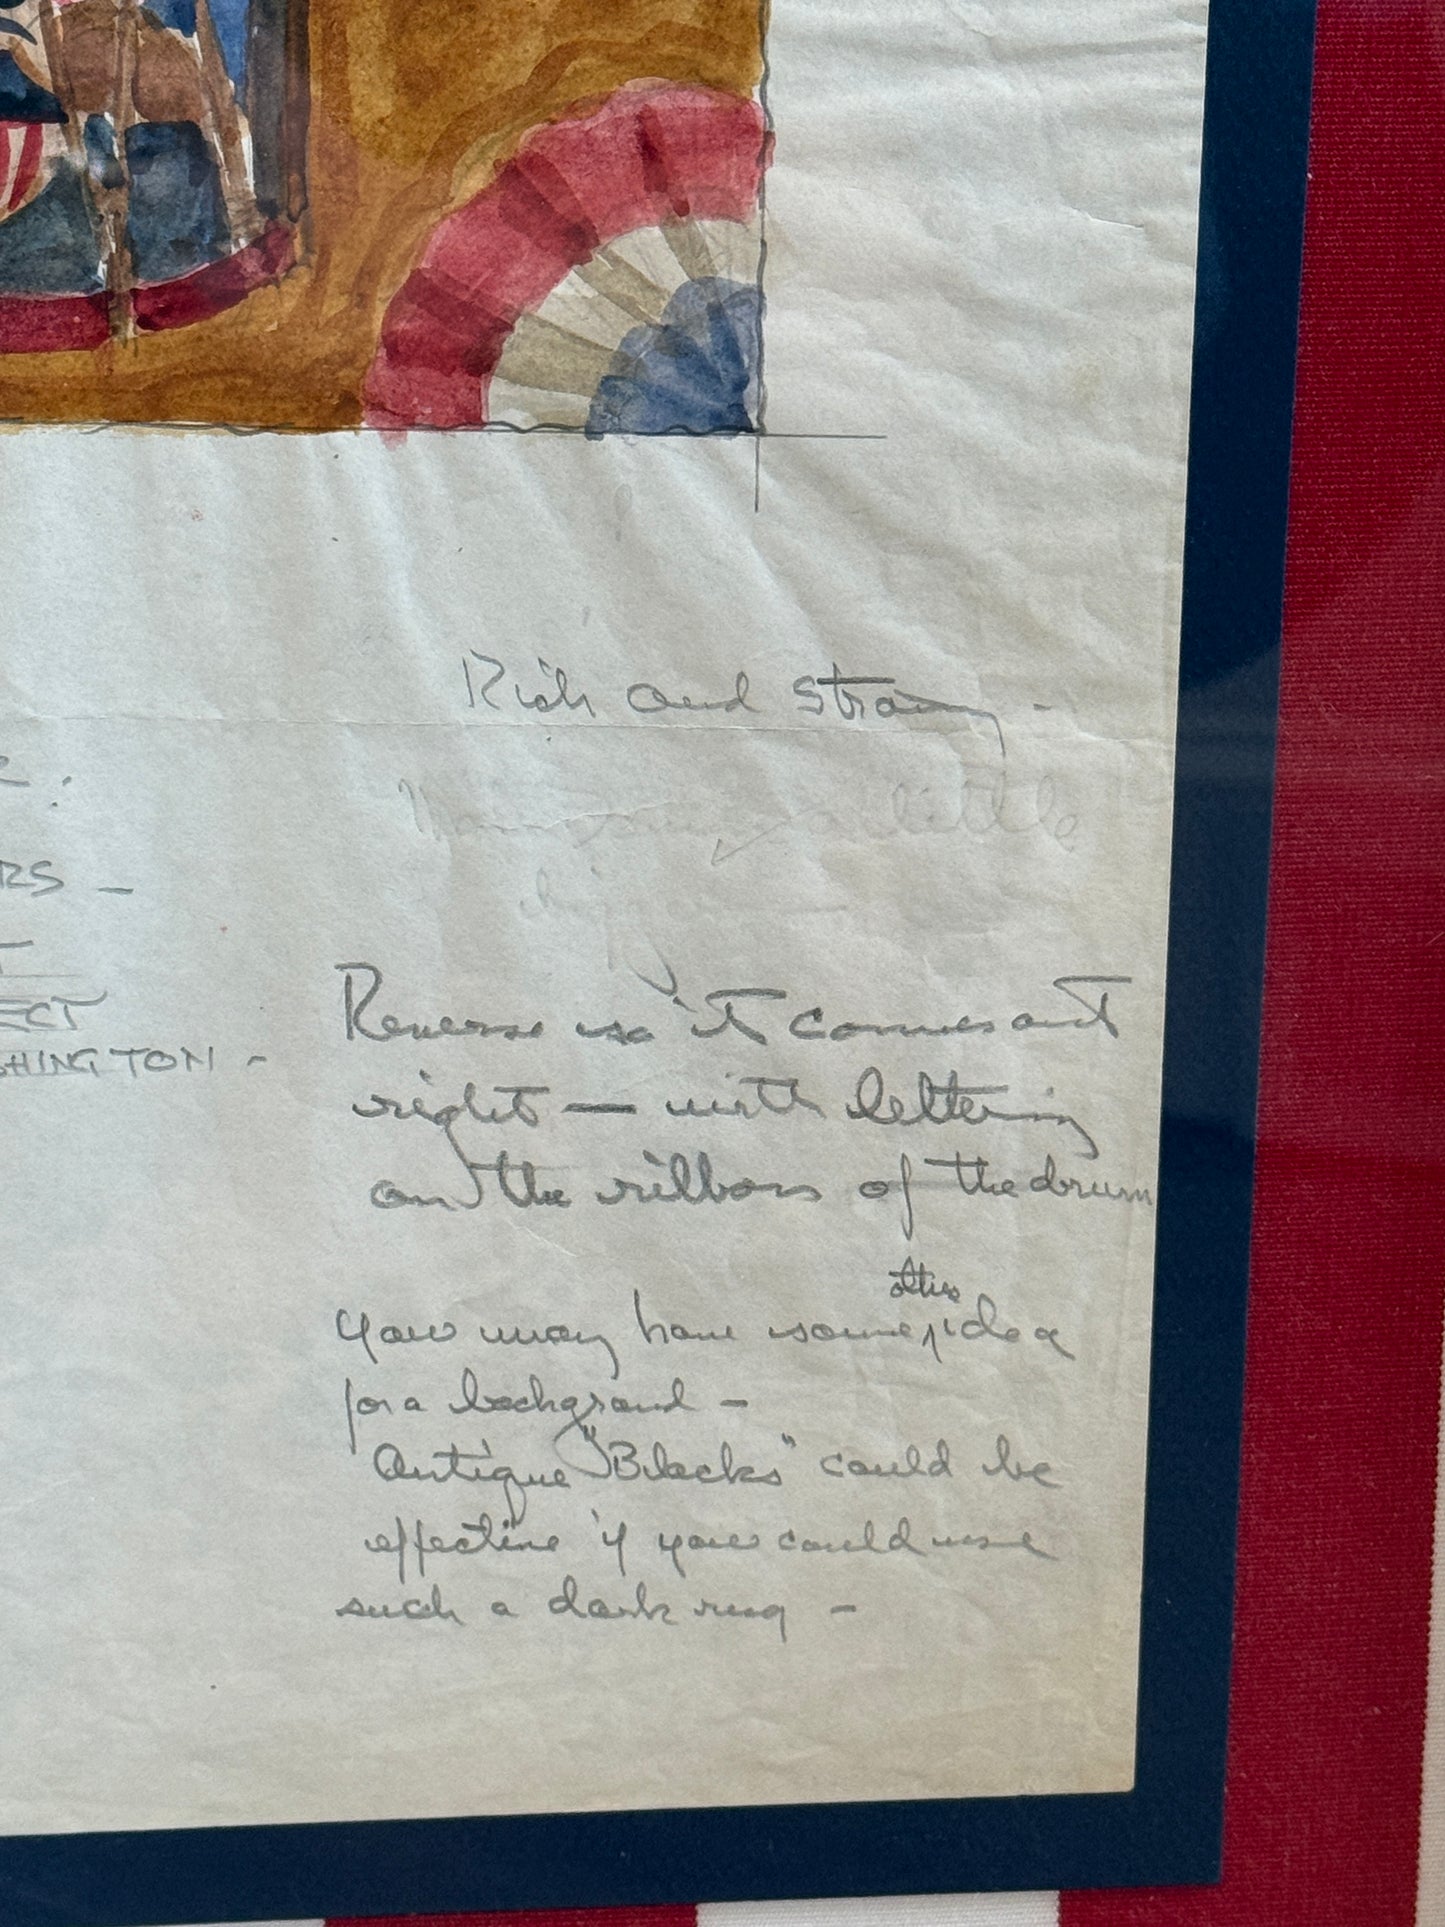 Rich and strong -
a little
R.
RS -
T
ECT
SHINGTON -
Reverse so it comes out
right — with lettering
on the ribbons of the drum
other
You may have some idea
for a background -
Antique "Blacks" could be
effective if you could use
such a dark rug -